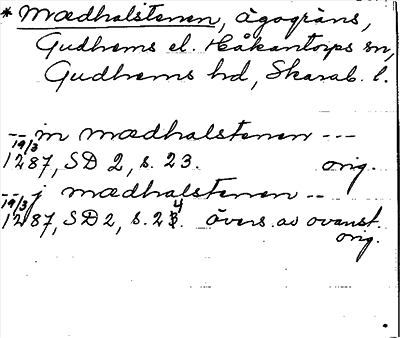 * Mædhalstenen, ägogräns,
Gudhems el. Håkantorps sn,
Gudhems hd, Skarab. l.
-- in mædhalstenen ---
19/3 1287, SD 2, s. 23. orig.
-- j mædhalstenen --
19/3 1287, SD 2, s. 24. övers. av ovanst.
orig.